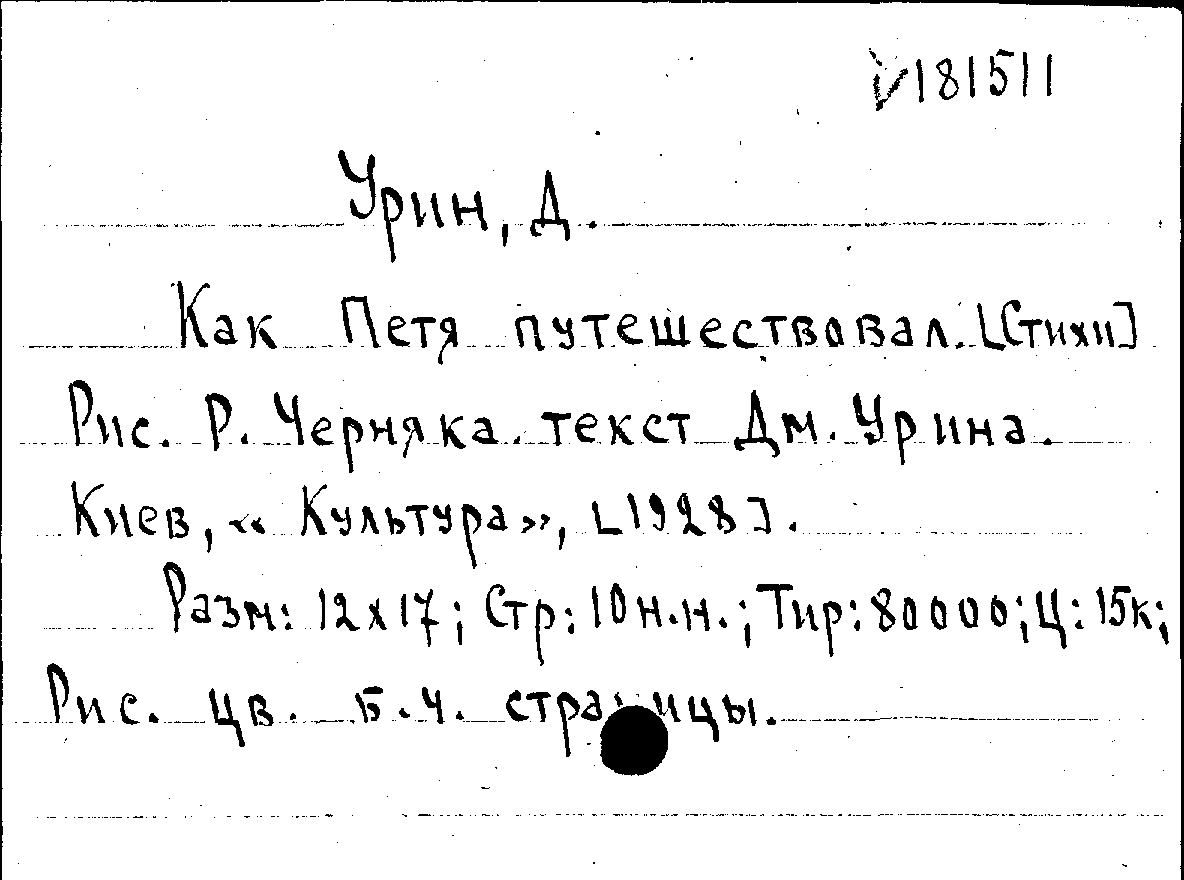 V181511
Урин, Д.
Как Петя путешествовал. [Стихи]
Рис. Р. Черняка. текст Дм. Урина.
Киев, «Культура», [1928].
Разм: 12x17; Стр: 10 н.н.; Тир: 80000; Ц: 15к;
Рис. цв. Б.ч. страницы.